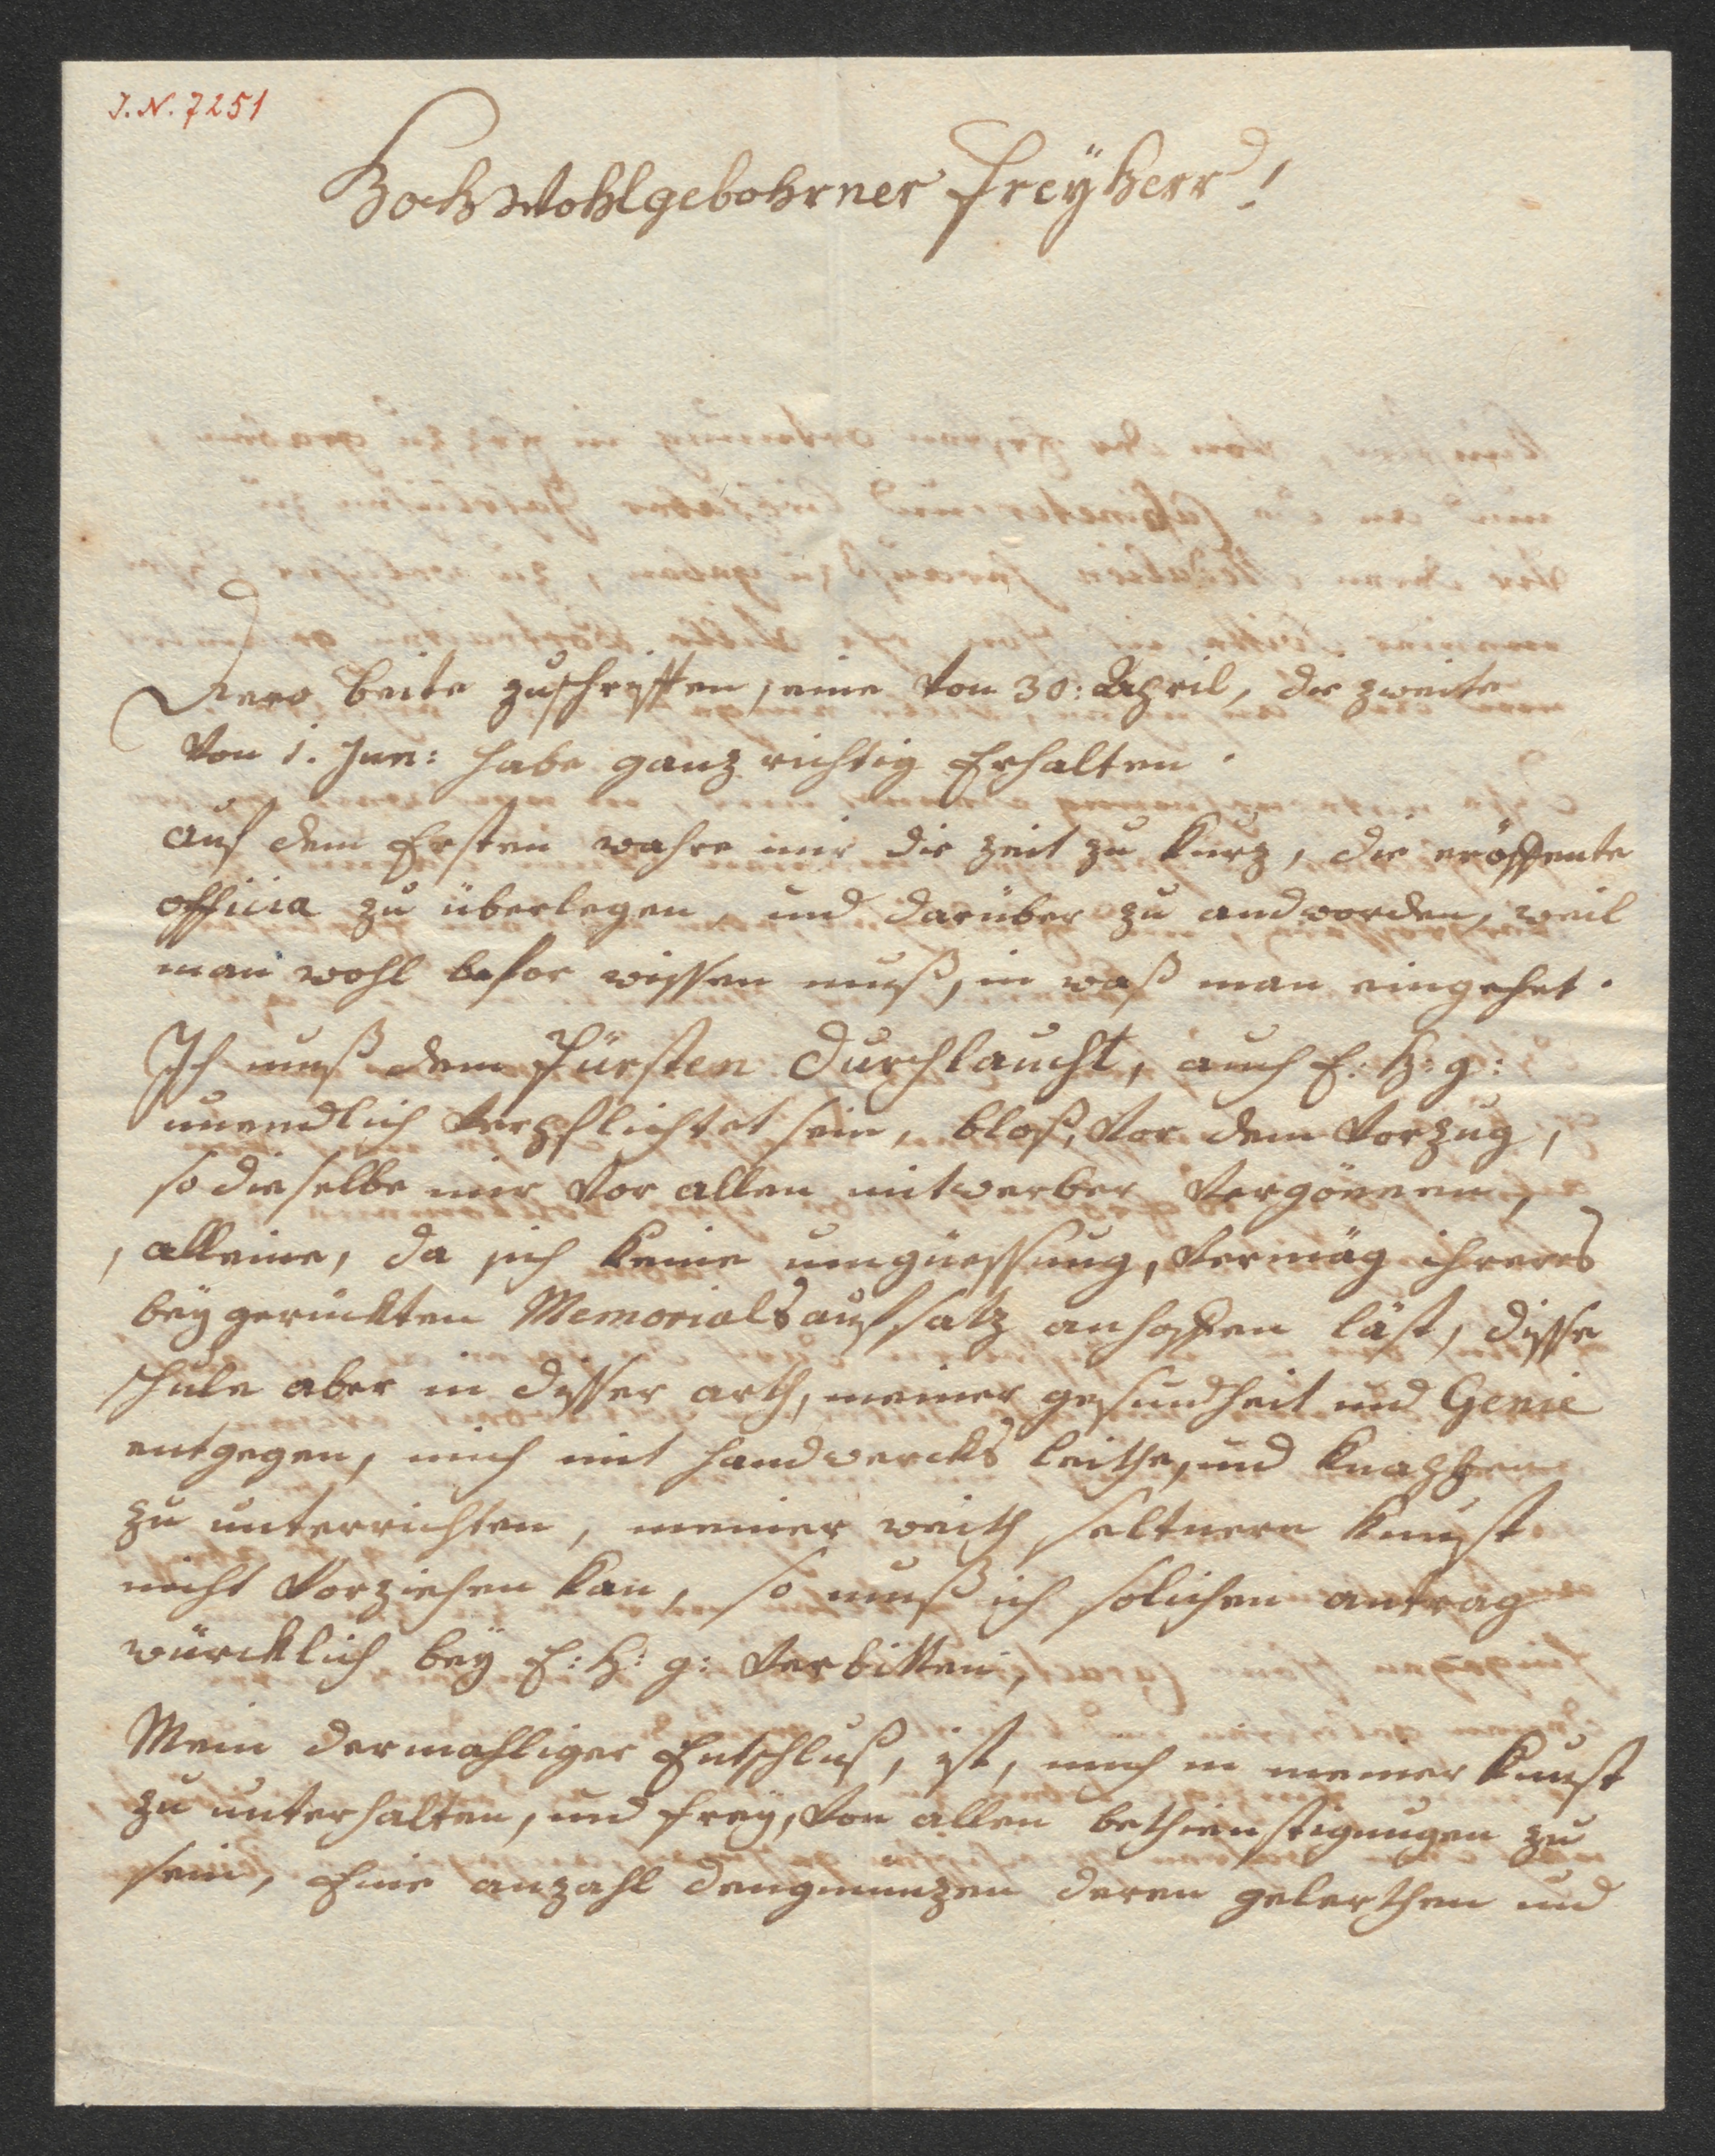 J. N. 7251
HochWohlgebohrner Freyherr!
Dero beite zuschrifften, eine von 30: April, die zweite
von 1. Jun: habe ganz richtig Erhalten.
auf dem Ersten wahre mir die zeit zu kurz, die eröffente
officia zu überlegen, und darüber zu andworden, weil
man wohl befor wissen muß, in waß man eingehet.
Ich muß dem Fürsten Durchlaucht, auch E: H: g:
unendlich verpflichtet sein, bloß, vor dem Vorzug,
so dieselbe mir vor allen mitwerber vergönnen,
, alleine, da sich keine umgüessung, vermäg ihreres
beygeruckten Memorials aufsatz anhoffen läst, disse
schule aber in disser arth, meiner gesundheit und Genie
entgegen, mich mit handwercks leithe, und knappen
zu unterrichten, meiner weith seltnern kunst
nicht vorziehen kan, so muß ich solichen antrag
würcklich bey E: H: g: verbitten,
Mein dermahliger Entschluß, ist, mich in meiner kunst
zu unterhalten, und frey, von allen bethienstigungen zu
sein, Eine anzahl dengmunzen deren gelerthen und